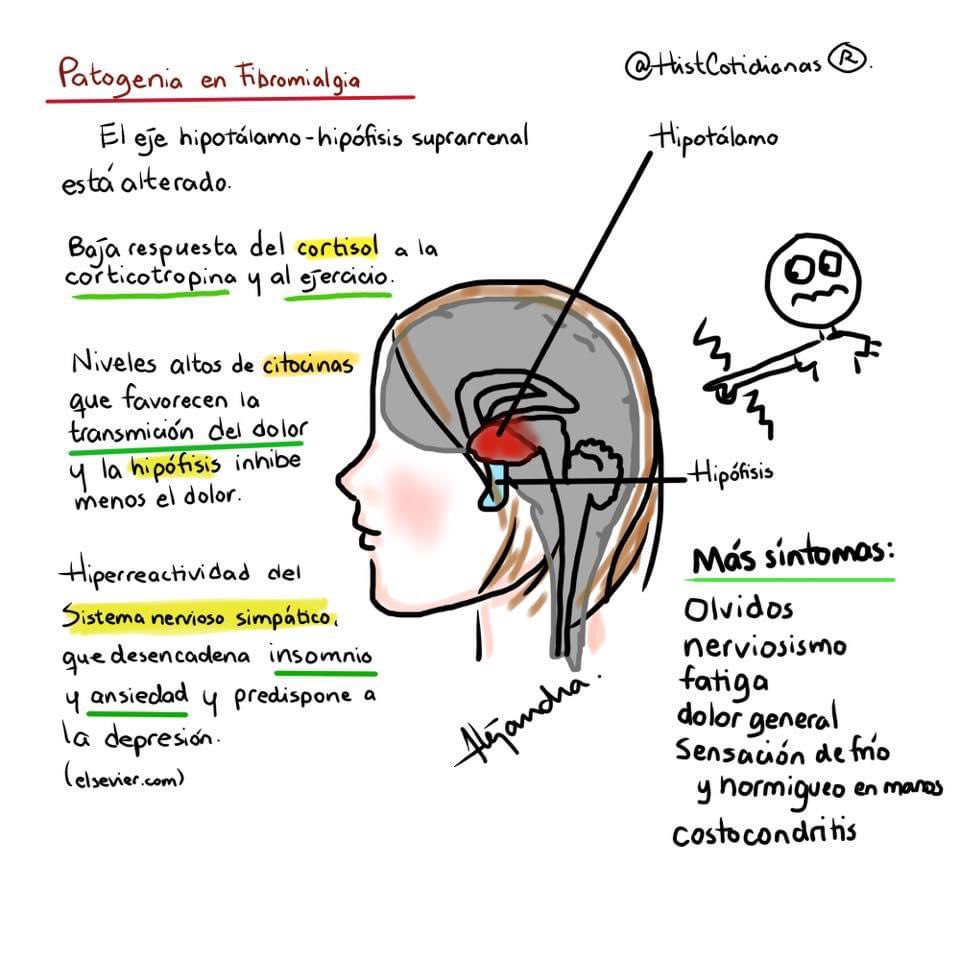 Patogenia en Fibromialgia
@HistCotidianas ®.
El eje hipotálamo-hipófisis suprarrenal
está alterado.
Baja respuesta del cortisol a la
corticotropina y al ejercicio.
Niveles altos de citocinas
que favorecen la
transmición del dolor
y la hipófisis inhibe
menos el dolor.
Hiperreactividad del
Sistema nervioso simpático,
que desencadena insomnio
y ansiedad y predispone a
la depresión.
(elsevier.com)
Hipotálamo
Hipófisis
Alejandra.
Más síntomas:
Olvidos
nerviosismo
fatiga
dolor general
Sensación de frío
y hormigueo en manos
costocondritis